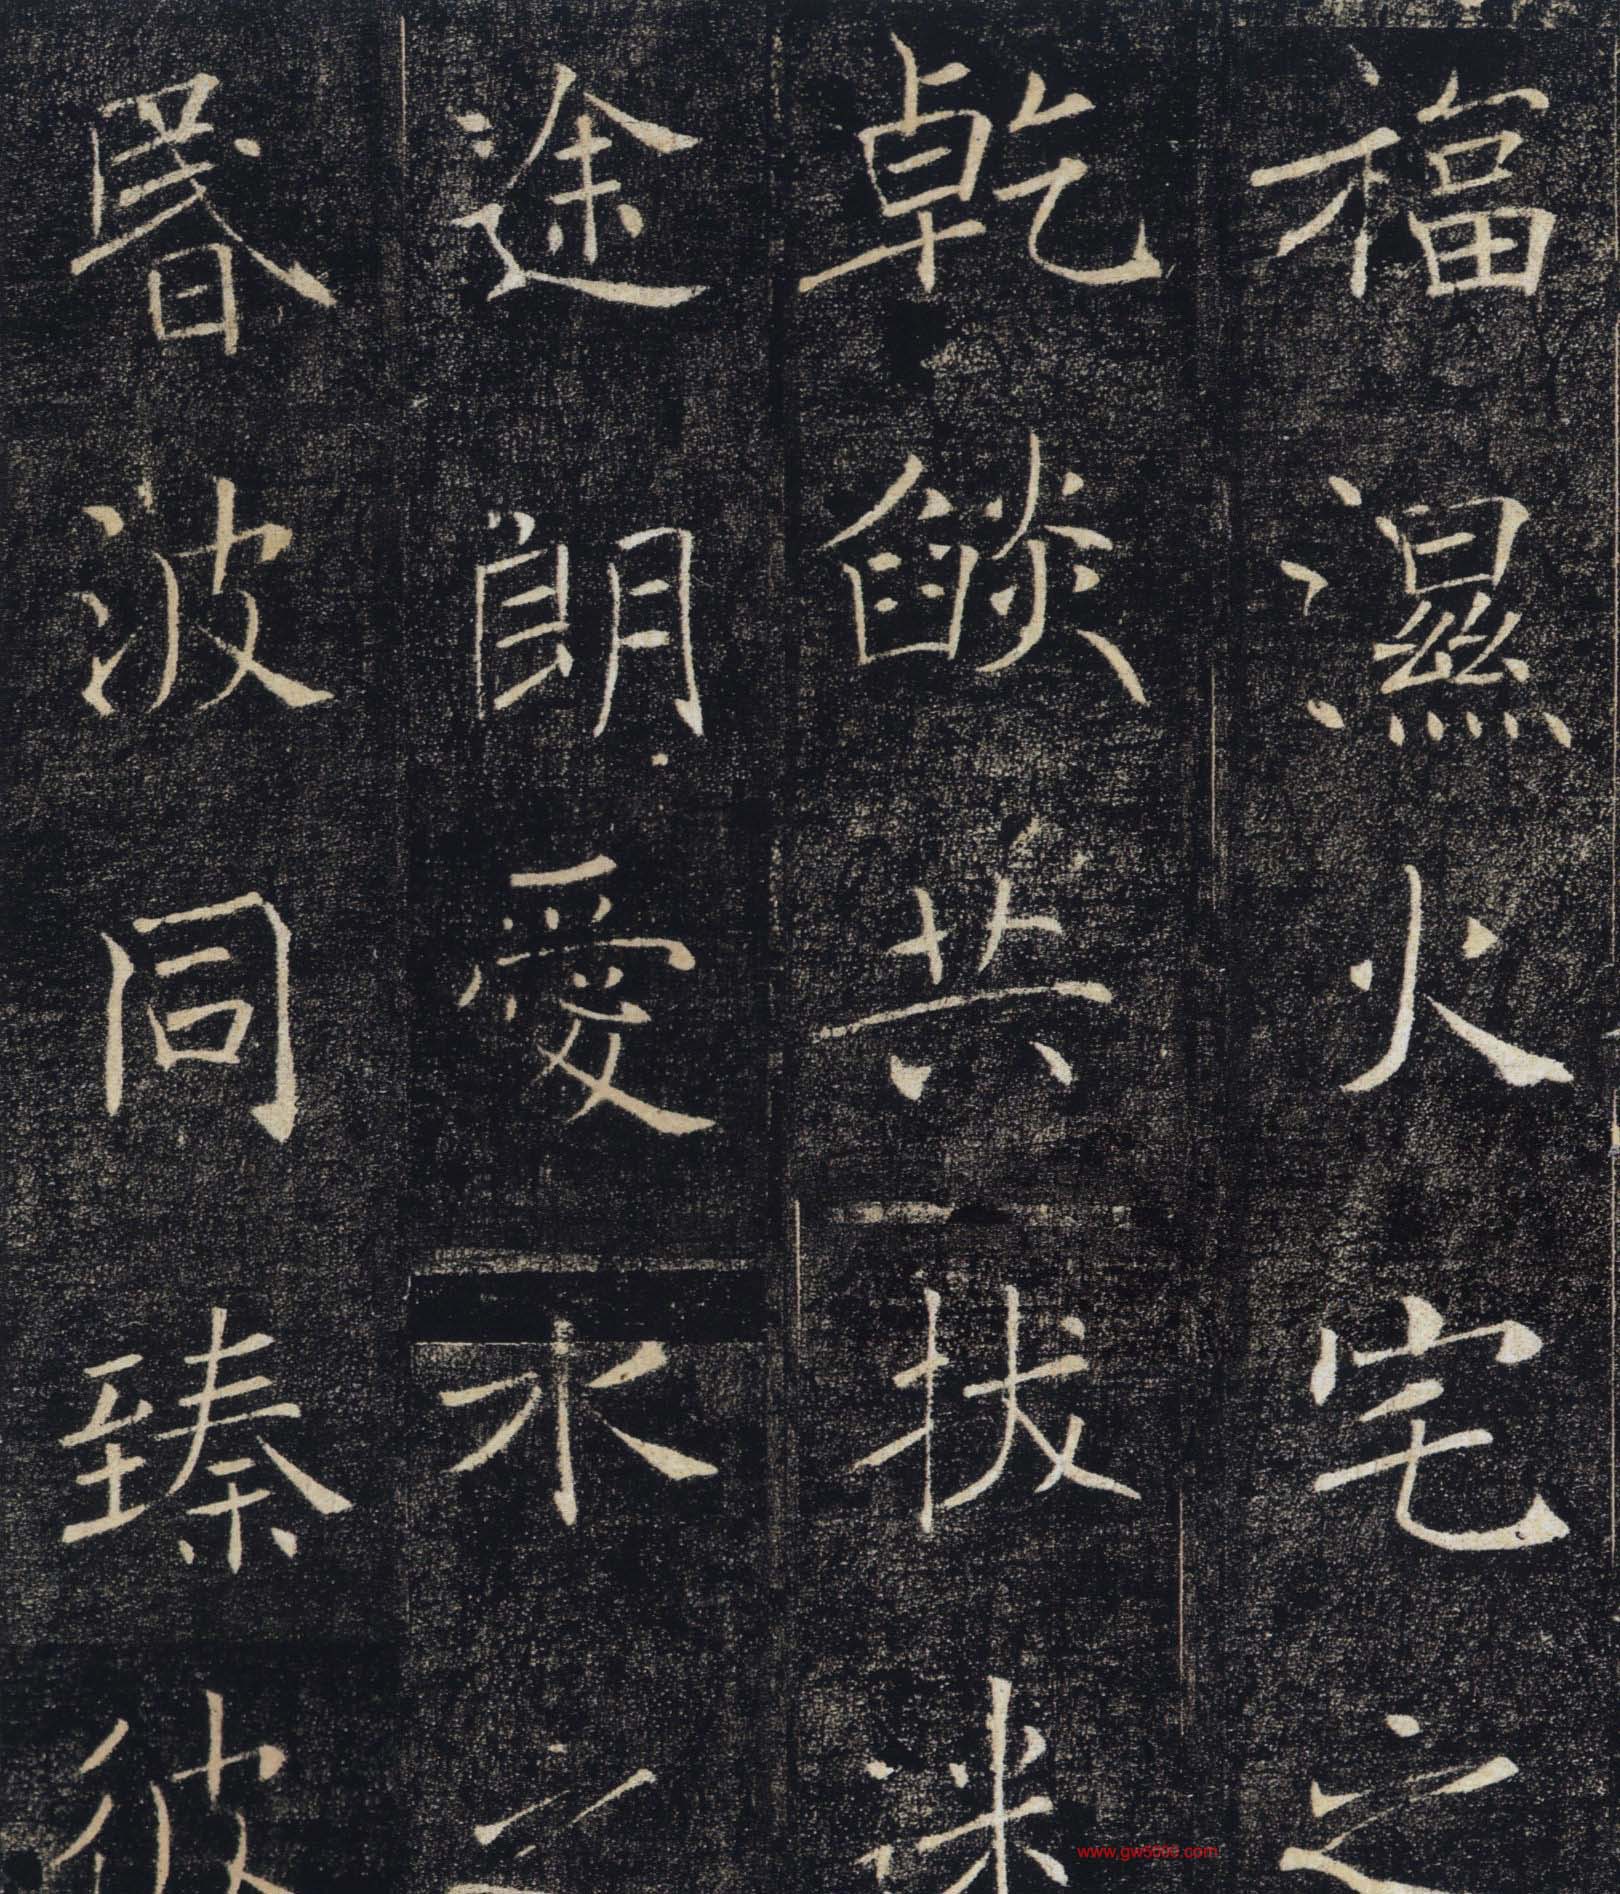 福濕火宅之
乾燄共拔迷
途朗愛水之
昬波同臻彼
www.gw5000.com